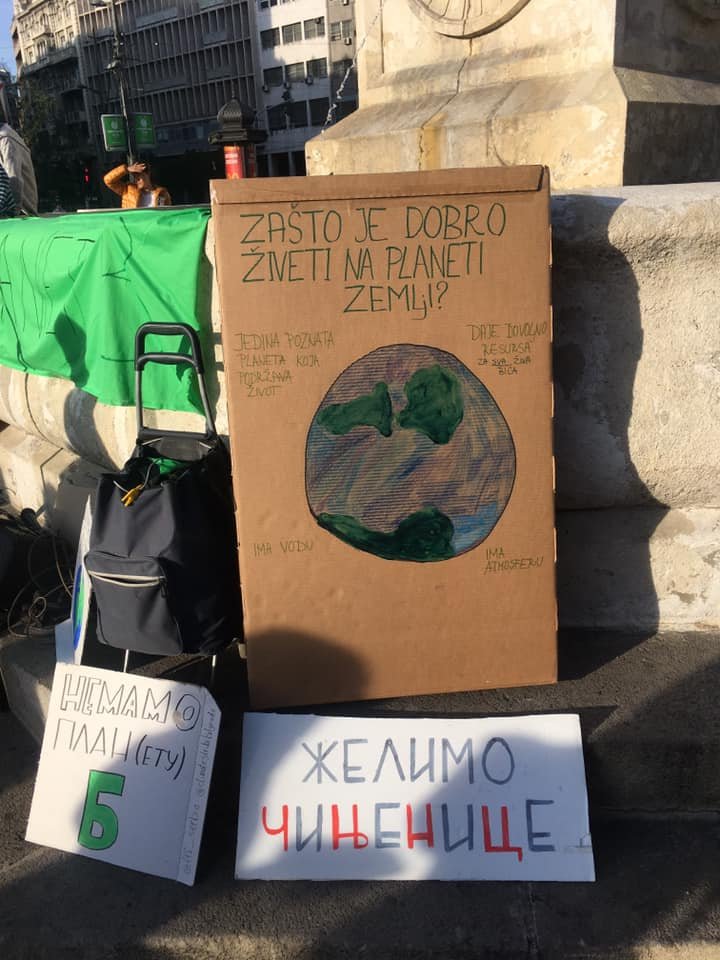 ZAŠTO JE DOBRO
ŽIVETI NA PLANETI
ZEMLJI?
JEDINA POZNATA
PLANETA KOJA
PODRŽAVA
ŽIVOT
DAJE DOVOLJNO
RESURSA
ZA SVA ŽIVA
BIĆA
IMA VODU
IMA
ATMOSFERU
НЕМАМО
ПЛАН(ЕТУ)
Б
ЖЕЛИМО
ЧИЊЕНИЦЕ